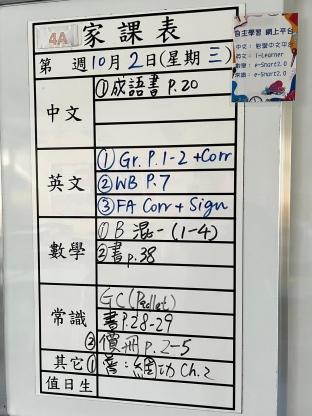 4A 家課表
第 週10月2日(星期三)
中文
①成語書 P.20
英文
① Gr. P.1-2 +Corr
② WB P.7
③ FA Corr + Sign
數學
① B 混一 (1-4)
② 書 p.38
常識
GC (Padlet)
書P.28-29
② 價冊 p.2-5
其它
① 普 網功 Ch.2
值日生
自主學習 網上平台
中文：
英文： i-Learner
數學： e-Smart2.0
常識： e-Smart2.0